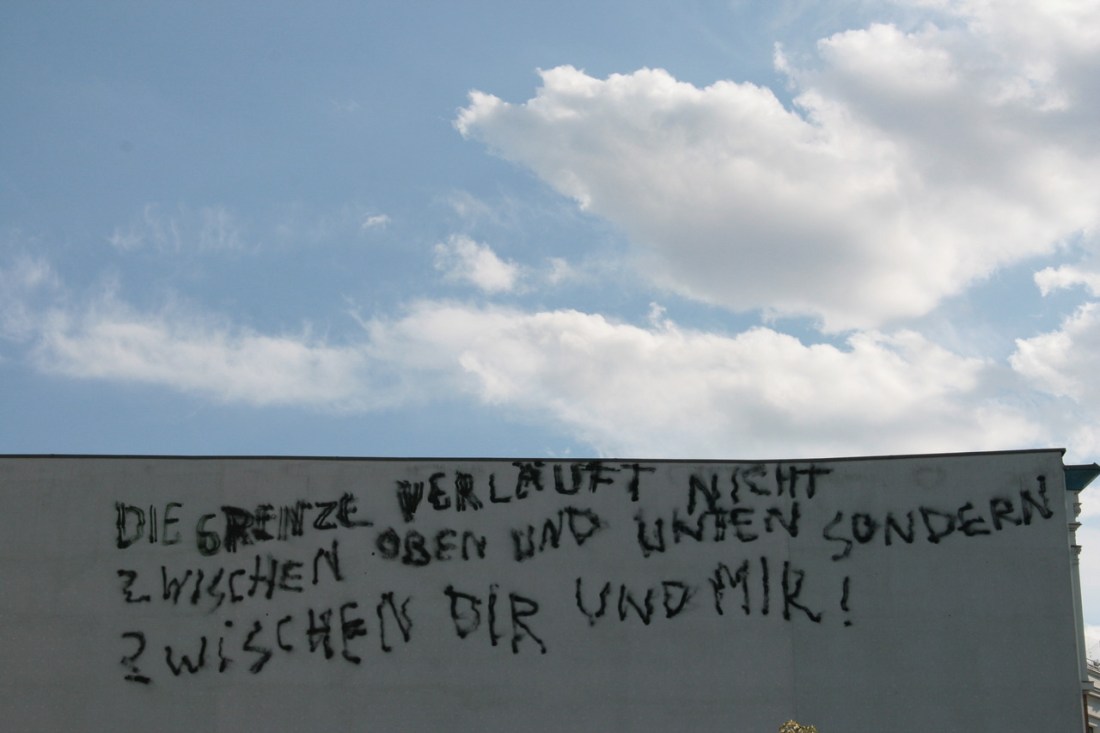 DIE GRENZE VERLÄUFT NICHT
ZWISCHEN OBEN UND UNTEN SONDERN
ZWISCHEN DIR UND MIR!